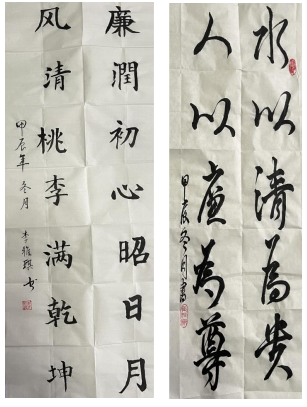 廉潤初心昭日月
风清桃李满乾坤
甲辰年冬月
水以清為贵
人以廉為尊
甲辰冬月書